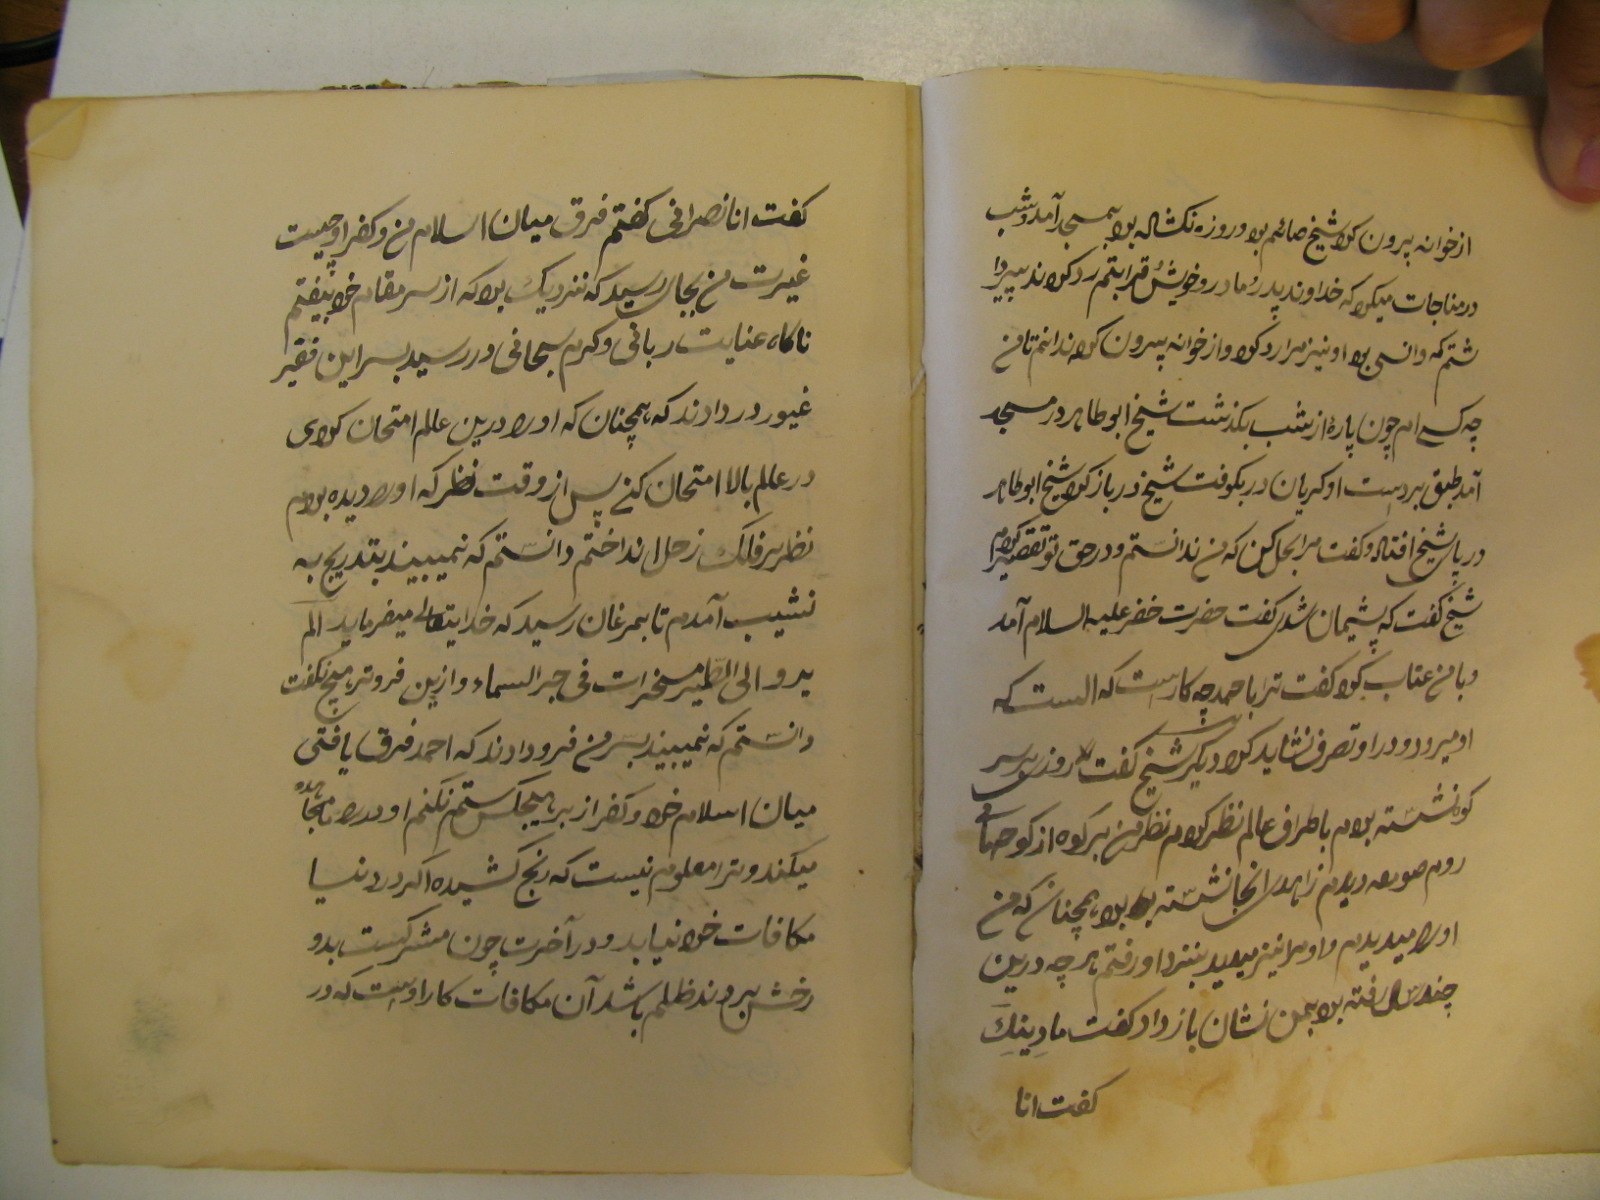 از خوانه بیرون کرد شیخ صائم بود و روزه نکشاده بود بمسجد آمد و شب
در مناجات میکرد که خداوند پدر و مادر و خویش قرابتم رد کردند پیر را
شتم که دانسی بود او نیز مرا رد کرد و از خوانه بیرون کرد ندانم تا من
چه کسی ام چون پارۀ از شب بگذشت شیخ ابو طاهر در مسجد
آمد طبق بردست او گریان در بکوفت شیخ در باز کرد شیخ ابوطاهر
در پای شیخ افتاد و گفت مرا بحل کن که من ندانستم و در حق تو تقصیر کردم
شیخ گفت که پشیمان شدی گفت حضرت خضر علیه السلام آمد
و با من عتاب کرد گفت ترا با احمد چه کار است که الست که
او میرود و در او تصرف نشاید کرد دیگر شیخ گفت که روزی بر سر
کوه نشسته بودم باطراف عالم نظر کردم نظر من بر کوه از کوهها
روم صومعه دیدم زاهدی آنجا نشسته بود همچنان که من
او را میدیدم و او مرا نیز میدید بنزد او رفتم هر چه درین
چند سال رفته بود بمن نشان باز داد گفت ما دینک
گفت انا
گفت انا نصرانی گفتم فرق میان اسلام من و کفر او چیست
غیرت من بجای رسید که نزدیک بود که از سر مقام خود بیفتم
ناگاه عنایت ربانی و کرم سبحانی در رسید بسر این فقیر
غیور در دادند که همچنان که او را درین عالم امتحان کردی
در عالم بالا امتحان کنی پس از وقت نظر که او را دیده بودم
نظر بر فلک زحل انداختم دانستم که نمیبیند بتدریج به
نشیب آمدم تا بمرغان رسید که خدایتعالی میفرماید الم
یروا الی الطیر مسخرات فی جو السماء و ازین فروتر هیچ نگفت
دانستم که نمیبیند بسر من فرو دادند که احمد فرق یافتی
میان اسلام خود و کفر از بر هیچکس ستم نکنم او در راه ما مجاهده
میکند و ترا معلوم نیست که رنج کشیده اگر در دنیا
مکافات خود نیابد و در آخرت چون مشرکیست بدو
رخش بردند ظلم باشد آن مکافات کار اوست که در